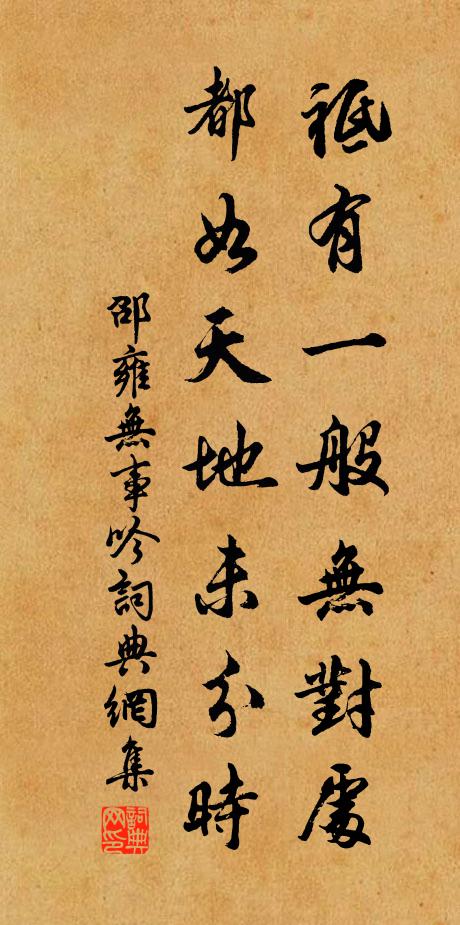 祗有一般無對處
都如天地未分時
邵雍無事吟詞典網集
詞典
网印